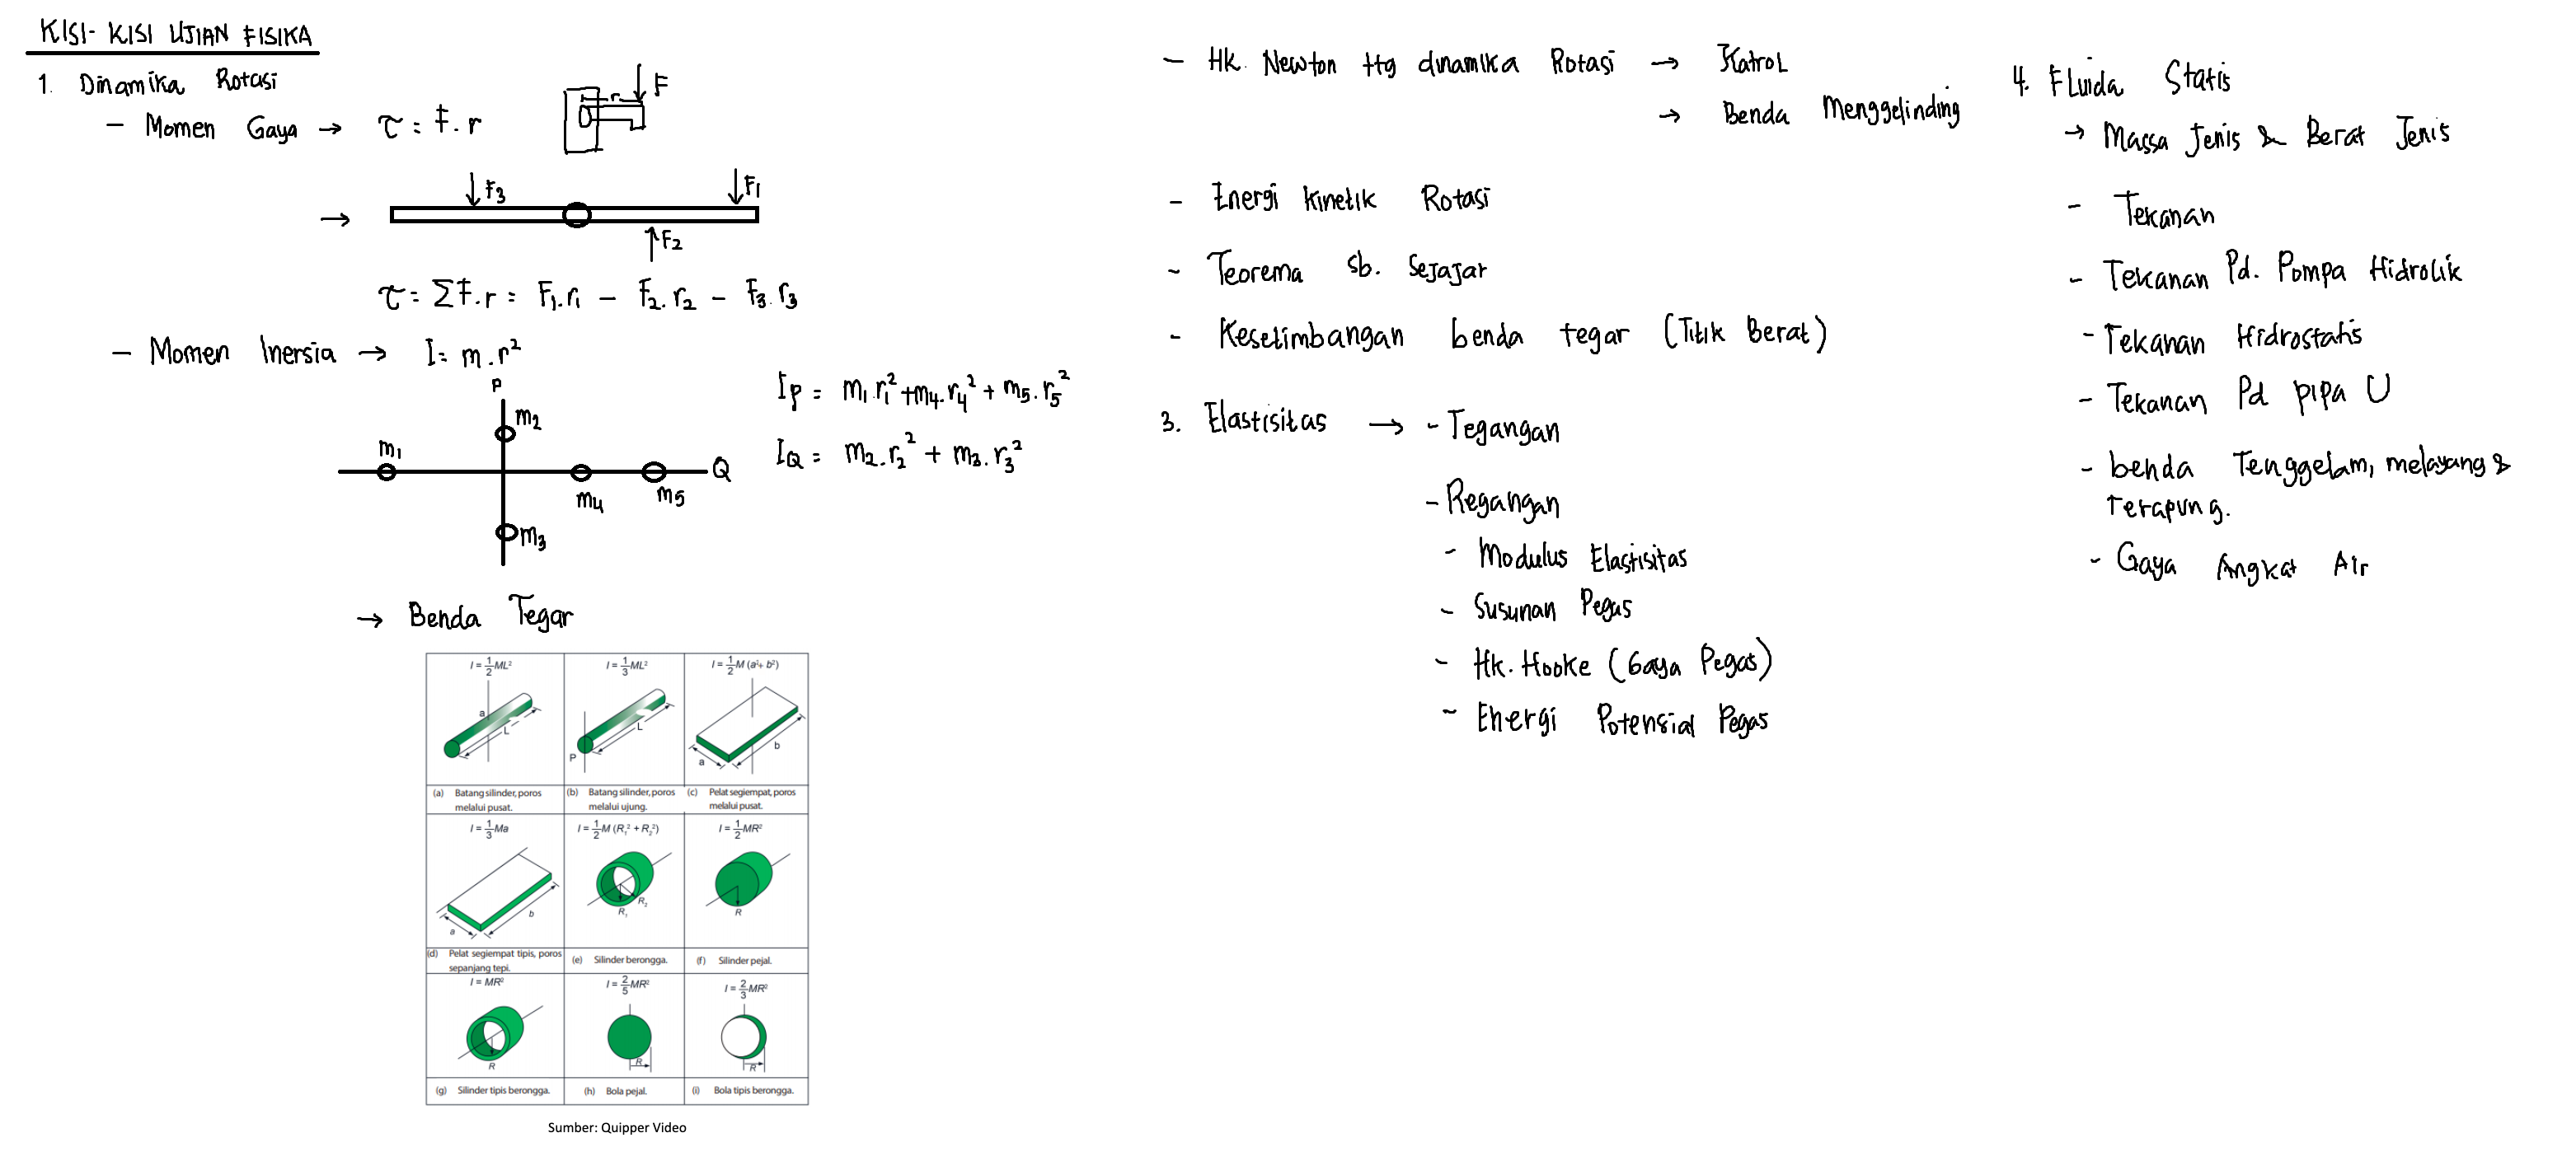 KISI-KISI UJIAN FISIKA
1. Dinamika Rotasi
- Momen Gaya → τ = F . r
r
F
→
F3
F1
F2
τ = ΣF.r = F1.r1 - F2.r2 - F3.r3
- Momen Inersia → I = m.r²
P
m2
m1
Q
m4
m5
m3
IP = m1.r1² + m4.r4² + m5.r5²
IQ = m2.r2² + m3.r3²
→ Benda Tegar
I = 1/2 ML²
a
L
(a) Batang silinder, poros
melalui pusat.
I = 1/3 ML²
L
P
(b) Batang silinder, poros
melalui ujung.
I = 1/2 M (a² + b²)
a
b
(c) Pelat segiempat, poros
melalui pusat.
I = 1/3 Ma
a
b
(d) Pelat segiempat tipis, poros
sepanjang tepi.
I = 1/2 M (R1² + R2²)
R1
R2
(e) Silinder berongga.
I = 1/2 MR²
R
(f) Silinder pejal.
I = MR²
R
(g) Silinder tipis berongga.
I = 2/5 MR²
R
(h) Bola pejal.
I = 2/3 MR²
R
(i) Bola tipis berongga.
Sumber: Quipper Video
- Hk. Newton ttg dinamika Rotasi → Katrol
→ Benda Menggelinding
- Energi Kinetik Rotasi
- Teorema Sb. Sejajar
- Keseimbangan benda tegar (Titik Berat)
3. Elastisitas → - Tegangan
- Regangan
- Modulus Elastisitas
- Susunan Pegas
- Hk. Hooke (Gaya Pegas)
- Energi Potensial Pegas
4. Fluida Statis
→ Massa Jenis & Berat Jenis
- Tekanan
- Tekanan Pd. Pompa Hidrolik
- Tekanan Hidrostatis
- Tekanan Pd pipa U
- benda Tenggelam, melayang &
Terapung.
- Gaya Angkat Air